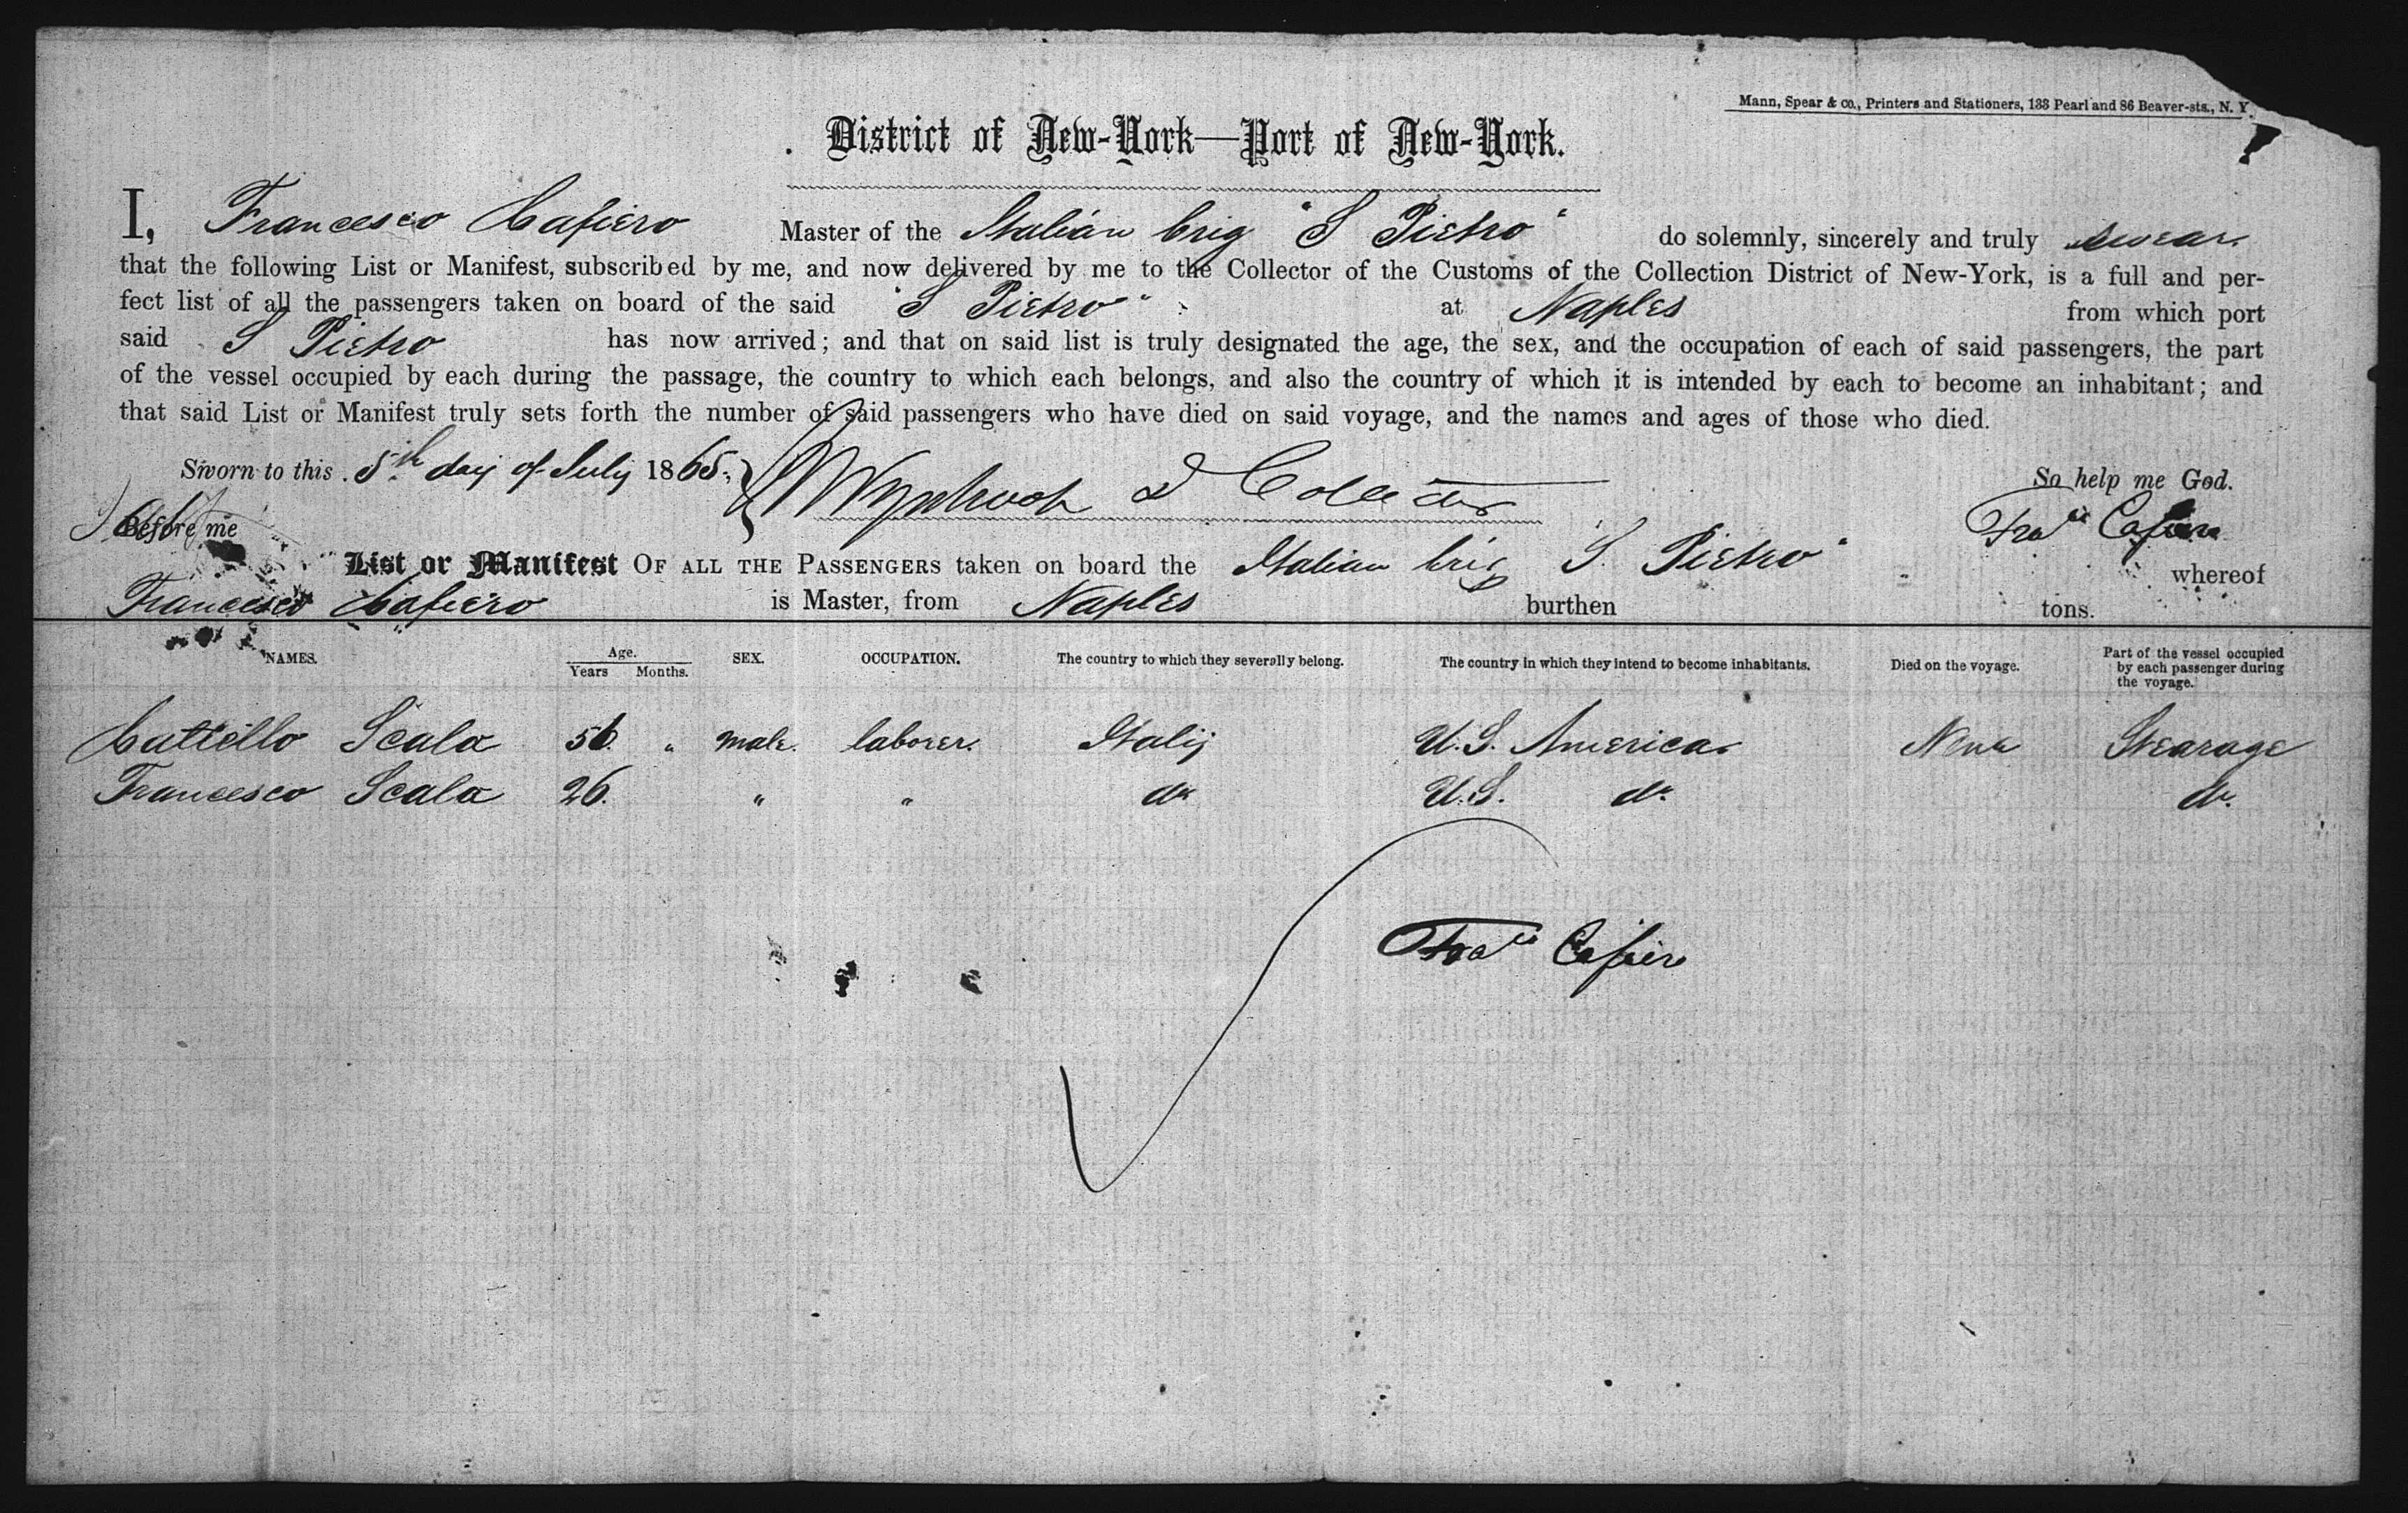 Mann, Spear & co., Printers and Stationers, 133 Pearl and 86 Beaver-sts., N. Y.
District of New-York—Port of New-York.
I, Francesco Cafiero Master of the Italian brig "S Pietro" do solemnly, sincerely and truly swear
that the following List or Manifest, subscribed by me, and now delivered by me to the Collector of the Customs of the Collection District of New-York, is a full and per-
fect list of all the passengers taken on board of the said "S Pietro" at Naples from which port
said S Pietro has now arrived; and that on said list is truly designated the age, the sex, and the occupation of each of said passengers, the part
of the vessel occupied by each during the passage, the country to which each belongs, and also the country of which it is intended by each to become an inhabitant; and
that said List or Manifest truly sets forth the number of said passengers who have died on said voyage, and the names and ages of those who died.
Sworn to this 5th day of July 1865. So help me God.
Before me D Collector Fraco Cafiero
List or Manifest OF ALL THE PASSENGERS taken on board the Italian brig "S. Pietro" whereof
Francesco Cafiero is Master, from Naples burthen tons.
NAMES. Age. Years Months. SEX. OCCUPATION. The country to which they severally belong. The country in which they intend to become inhabitants. Died on the voyage. Part of the vessel occupied by each passenger during the voyage.
Cattello Scala " male. laborer. Italy U.S. America None Stearage
Francesco Scala 26. " " do U.S. do do.
Fraco Cafiero